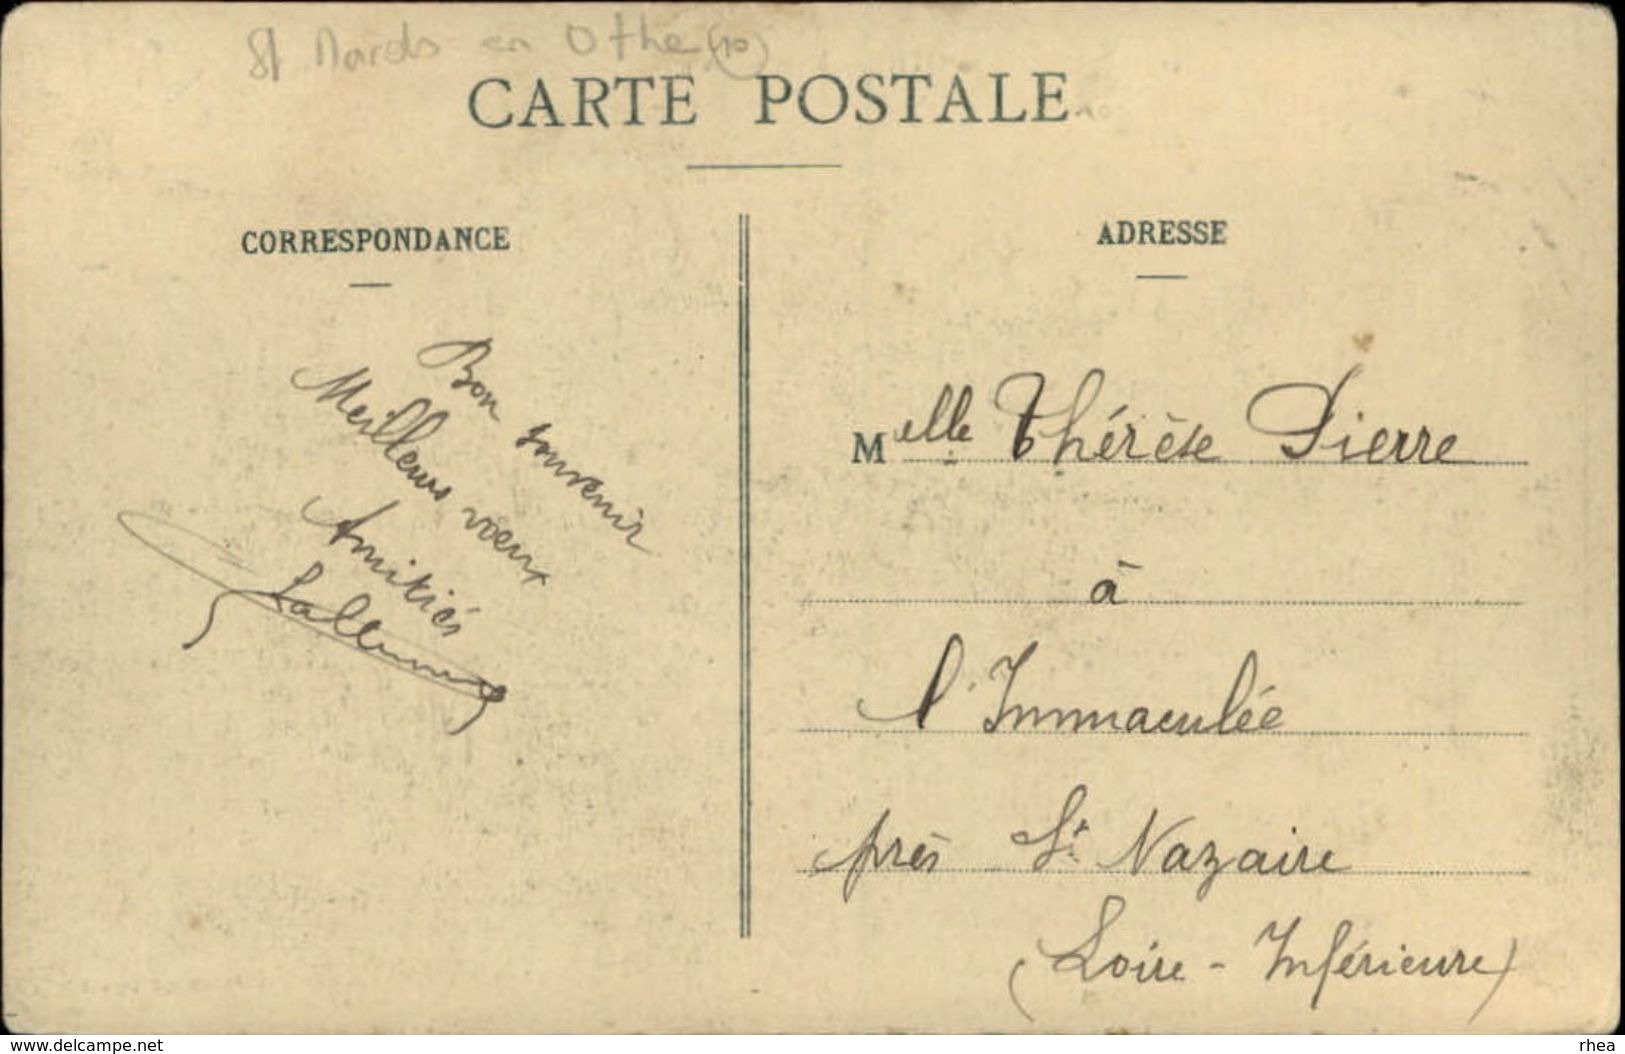 St Mards en Othe (10)
CARTE POSTALE
CORRESPONDANCE
Bon souvenir
Meilleurs voeux
Amitiés
ADRESSE
Melle Thérèse Pierre
à
l'Immaculée
près St Nazaire
(Loire-Inférieure)
www.delcampe.net
rhea